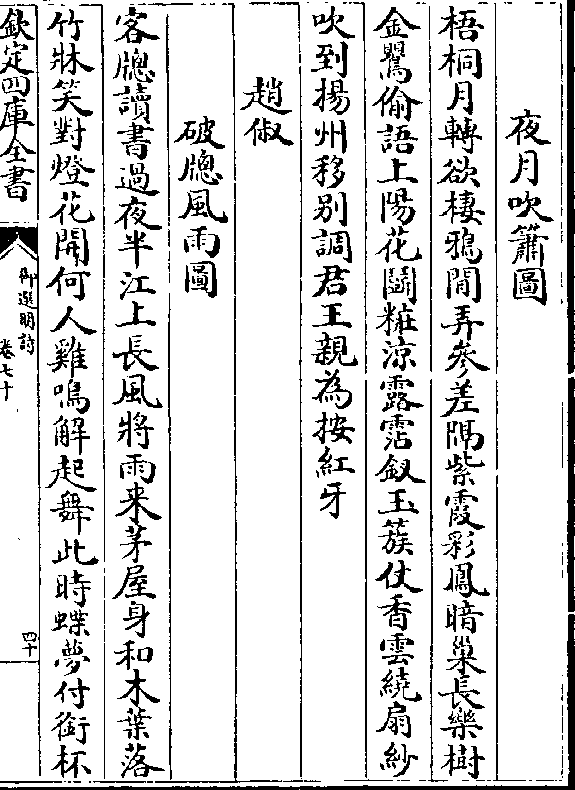 夜月吹簫圖
梧桐月轉欲棲鴉閒弄參差隔紫霞彩鳳暗巢長樂樹
金鸎偷語上陽花鬭粧涼露霑釵玉簇仗香雲繞扇紗
吹到揚州移别調君王親為按紅牙
趙俶
破牕風雨圖
客牕讀書過夜半江上長風將雨来茅屋身和木葉落
竹牀笑對燈花開何人雞鳴解起舞此時蝶夢付銜杯
欽定四庫全書
御選明詩
卷七十
四十